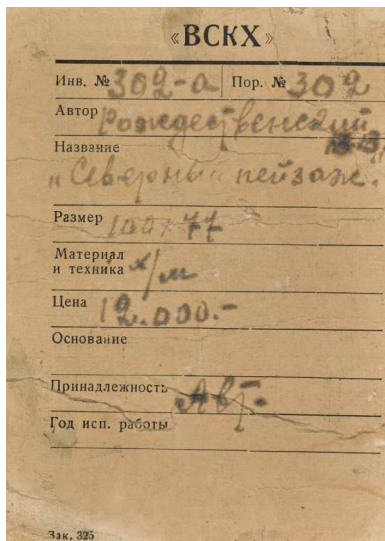 «ВСКХ»
Инв. № 302-а Пор. № 302
Автор Рождественский
Название
"Северный пейзаж"
Размер 100х77
Материал
и техника х/м
Цена 12.000.-
Основание
Принадлежность Авт.
Год исп. работы
Зак. 325